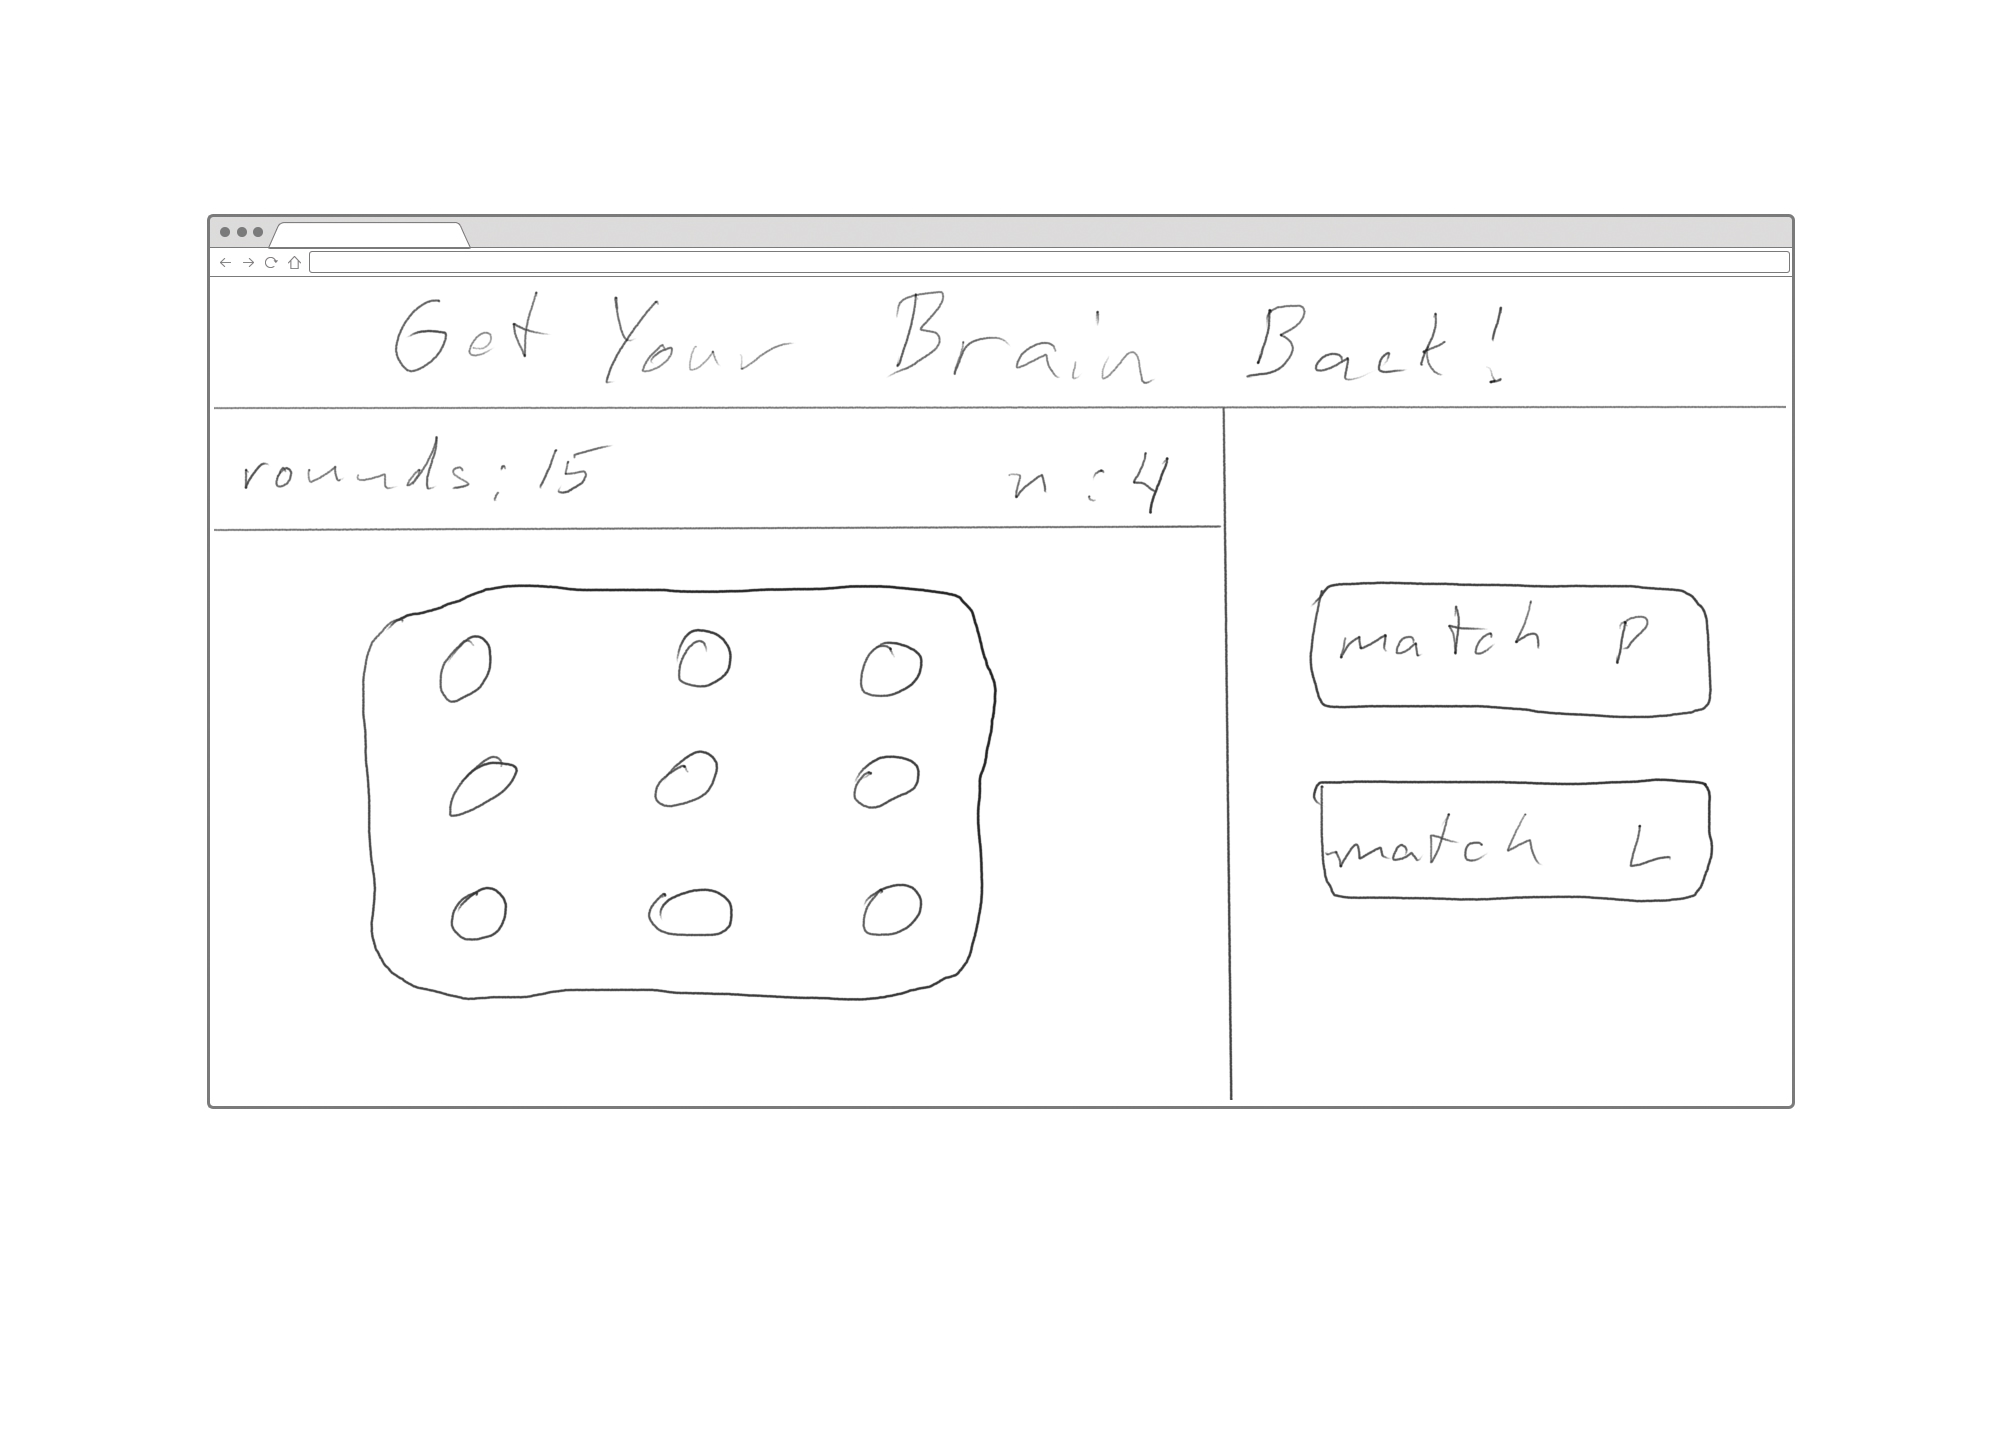 Get Your Brain Back!
rounds: 15
n: 4
match P
match L